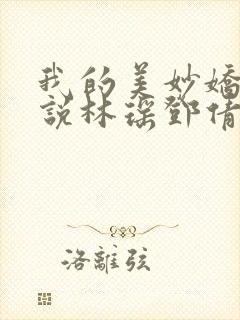 我的美妙嬌
說林瑤鄧倩
洛離弦